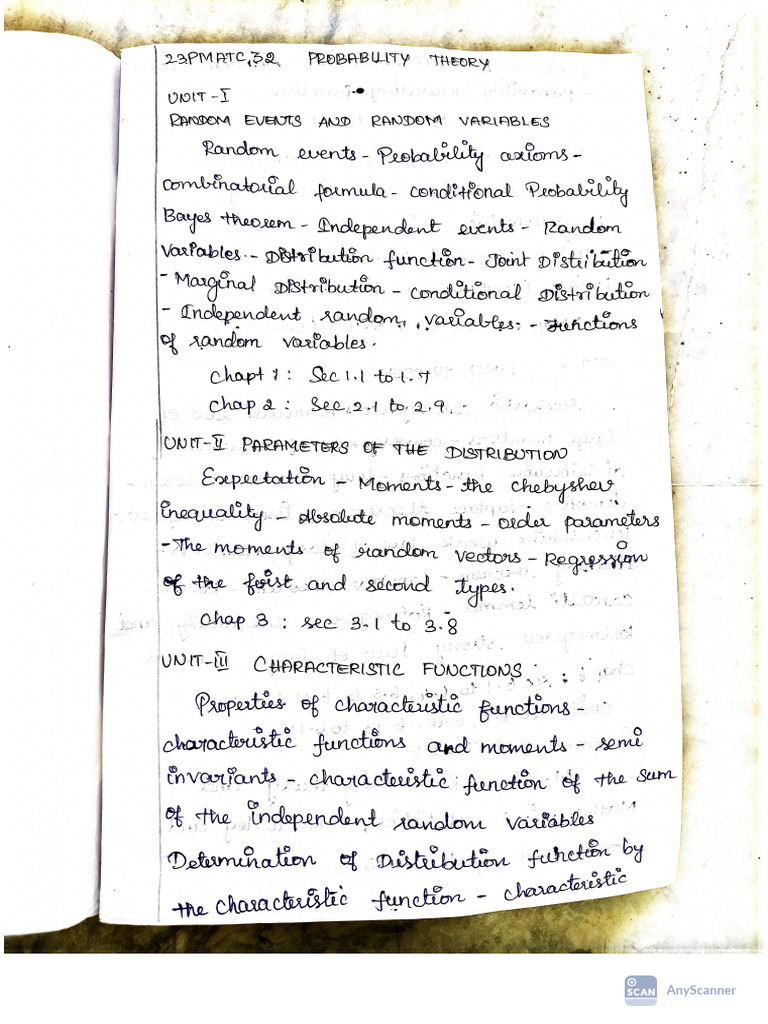 23PMATC32 PROBABILITY THEORY
UNIT-I
RANDOM EVENTS AND RANDOM VARIABLES
Random events - Probability axioms -
combinatorial formula - conditional Probability
Bayes theorem - Independent events - Random
Variables - Distribution function - Joint Distribution
- Marginal Distribution - conditional Distribution
- Independent random variables - Functions
of random variables.
Chapt 1: Sec 1.1 to 1.7
Chap 2: Sec 2.1 to 2.9
UNIT-II PARAMETERS OF THE DISTRIBUTION
Expectation - Moments - the chebyshev
inequality - Absolute moments - order parameters
- The moments of random vectors - Regression
of the first and second types.
Chap 3: sec 3.1 to 3.8
UNIT-III CHARACTERISTIC FUNCTIONS
Properties of characteristic functions -
characteristic functions and moments - semi
invariants - characteristic function of the sum
of the independent random variables
Determination of Distribution function by
the characteristic function - characteristic
SCAN AnyScanner